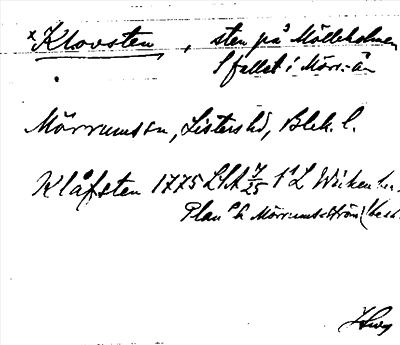 *Klovsten, sten på Mölleholmen
i fallet i Mörr:ån
Mörrumssn, Listershd, Blek. l.
Klåfsten 1775 LSA 7/25 1:1 L Wickenber
Plan å Mörrumsström (best